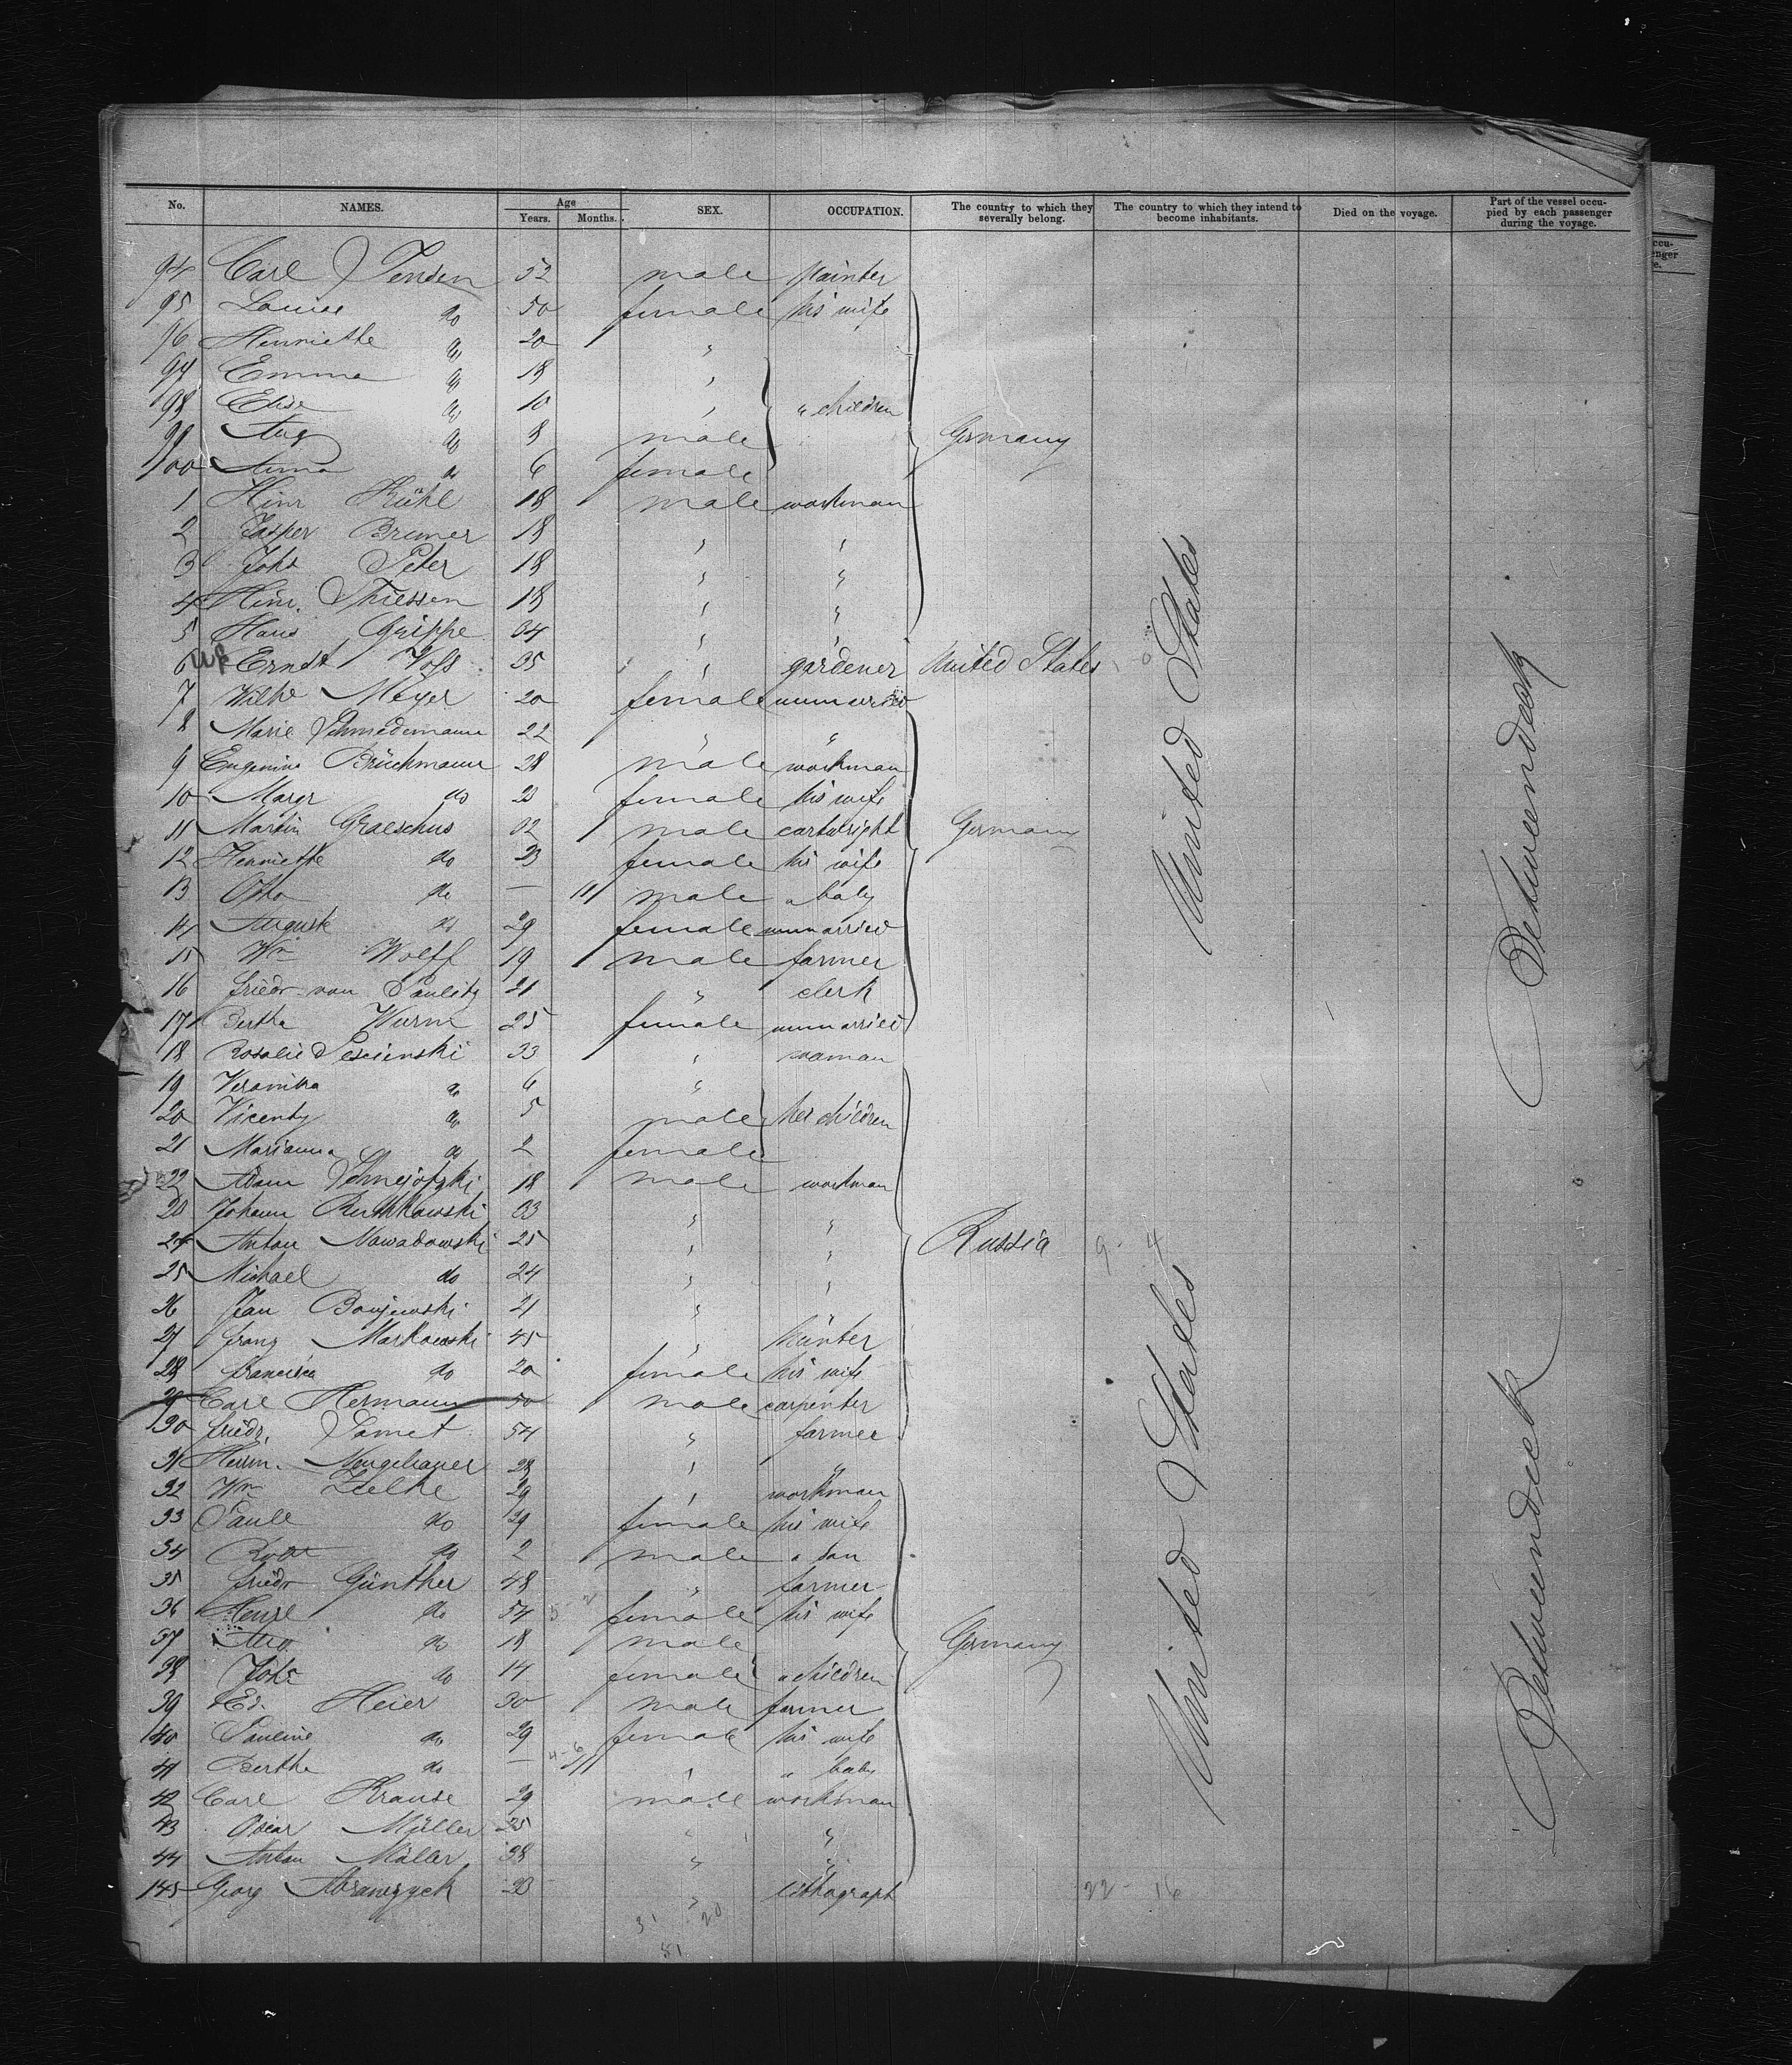 No. NAMES. Age Years. Months. SEX. OCCUPATION. The country to which they severally belong. The country to which they intend to become inhabitants. Died on the voyage. Part of the vessel occupied by each passenger during the voyage.
94 Carl Jensen 52 male painter
95 Louise do 50 female his wife
96 Henriette do 20 "
97 Emma do 18 "
98 Elise do 10 " " children
99 Aug do 8 male Germany
100 Anna do 6 female
1 Hinr Kühl 18 male workman
2 Jasper Bremer 18 " "
3 Johs Peter 18 " "
4 Hinr. Thiessen 18 " "
5 Hans Grippe 34 " "
6 Ernst Voss 35 " gardener United States
7 Wilhe Meyer 20 female unmarried
8 Marie Schmedemann 22 " "
9 Brüchmann 28 male workman
10 Margr do 23 female his wife
11 Martin Graeschus 32 male cartwright Germany
12 Henriette do 23 female his wife
13 Otto do — 11 male " baby
14 Auguste do 29 female unmarried
15 Wm Wolff 19 male farmer
16 Friedr von Paulitz 21 " clerk
17 Bertha Wurm 25 female unmarried
18 Rosalie 33 " woman
19 Veronika do 6 "
20 Vicenty do 5 male her children
21 Marianna do 2 female
22 Adam 18 male workman
23 Johann Ruthkowski 33 " "
24 Anton Nawadowski 25 " " Russia 9 - 4
25 Michael do 24 " "
26 Jan 21 "
27 Franz Markowski 45 "
28 Francisca do 20 female his wife
29 Carl Hermann 50 male carpenter
130 Friedr. Samet 54 " farmer
31 Herrm. Neugebauer 28 " "
32 Wm Zielke 29 " workman
33 do 29 female his wife
34 Robt do 2 male " son
35 Friedr Günther 48 " farmer
36 do 54 female his wife
37 Aug. do 18 male Germany
38 do 14 female " children
39 Ed. Heier 30 male farmer
140 Pauline do 29 female his wife
41 Bertha do — 11 " " baby
42 Carl Krause 29 male workman
43 Oscar Müller 25 " "
44 Anton Müller 38 " "
145 Georg 23 " lithograph 22 - 16
31 20
51
United States
United States
Betweendeck
Betweendeck